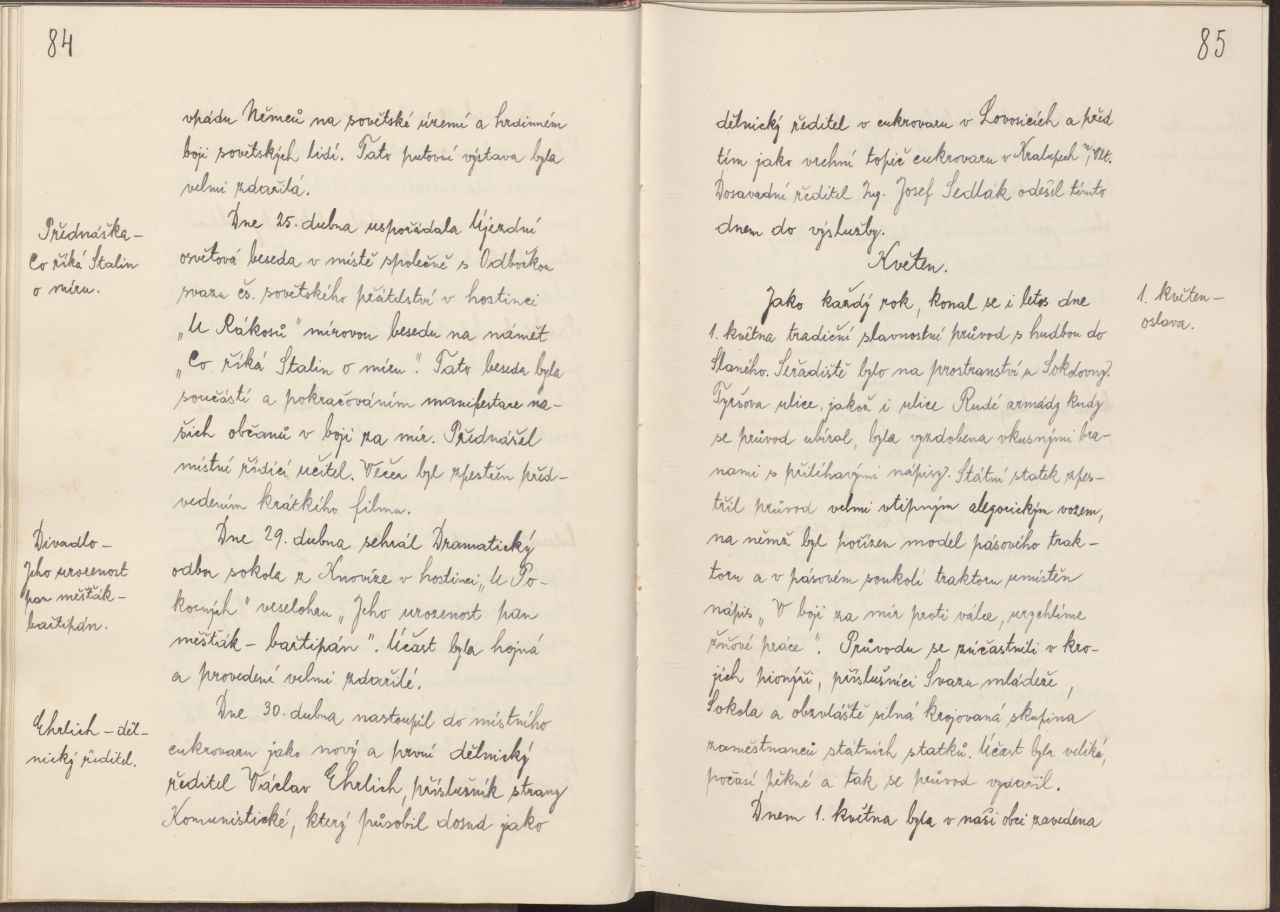 84
vpádu Němců na sovětské území a hrdinném
boji sovětských lidí. Tato putovní výstava byla
velmi zdařilá.
Přednáška –
Co říká Stalin
o míru.
Dne 25. dubna uspořádala Újezdní
osvětová beseda v místě společně s Odbočkou
svazu čs. sovětského přátelství v hostinci
„U Rákosů" mírovou besedu na námět
„Co říká Stalin o míru". Tato beseda byla
součástí a pokračováním manifestace na-
šich občanů v boji za mír. Přednášel
místní řídící učitel. Večer byl zpestřen před-
vedením krátkého filmu.
Divadlo –
Jeho urozenost
pan měšťák –
baštipán.
Dne 29. dubna sehrál Dramatický
odbor sokola z Knovíze v hostinci „U Po-
korných" veselohru „Jeho urozenost pan
měšťák – baštipán". Účast byla hojná
a provedení velmi zdařilé.
Ehrlich – děl-
nický ředitel.
Dne 30. dubna nastoupil do místního
cukrovaru jako nový a první dělnický
ředitel Václav Ehrlich, příslušník strany
Komunistické, který působil dosud jako
85
dělnický ředitel v cukrovaru v Lovosicích a před
tím jako vrchní topič cukrovaru v Kralupech n/Vlt.
Dosavadní ředitel Ing. Josef Sedlák odešel tímto
dnem do výslužby.
Květen.
1. květen –
oslava.
Jako každý rok, konal se i letos dne
1. května tradiční slavnostní průvod s hudbou do
Slaného. Seřadiště bylo na prostranství u Sokolovny.
Tyršova ulice, jakož i ulice Rudé armády kudy
se průvod ubíral, byla vyzdobena vkusnými bra-
nami s přiléhavými nápisy. Státní statek zpes-
třil průvod velmi vtipným alegorickým vozem,
na němž byl pořízen model pásového trak-
toru a v pásovém soukolí traktoru umístěn
nápis „V boji za mír proti válce, urychlíme
žňové práce". Průvodu se zúčastnili v kro-
jích pionýři, příslušníci Svazu mládeže,
Sokola a obzvláště silná krojovaná skupina
zaměstnanců státních statků. Účast byla veliká,
počasí pěkné a tak se průvod vydařil.
Dnem 1. května byla v naší obci zavedena